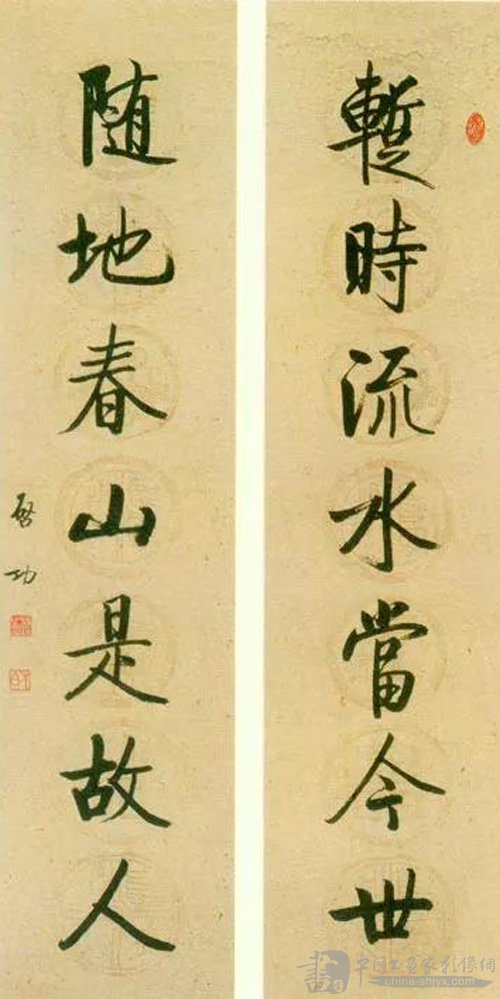 暫時流水當今世
随地春山是故人
啓功
中国书画家影像網
www.china-shjyx.com